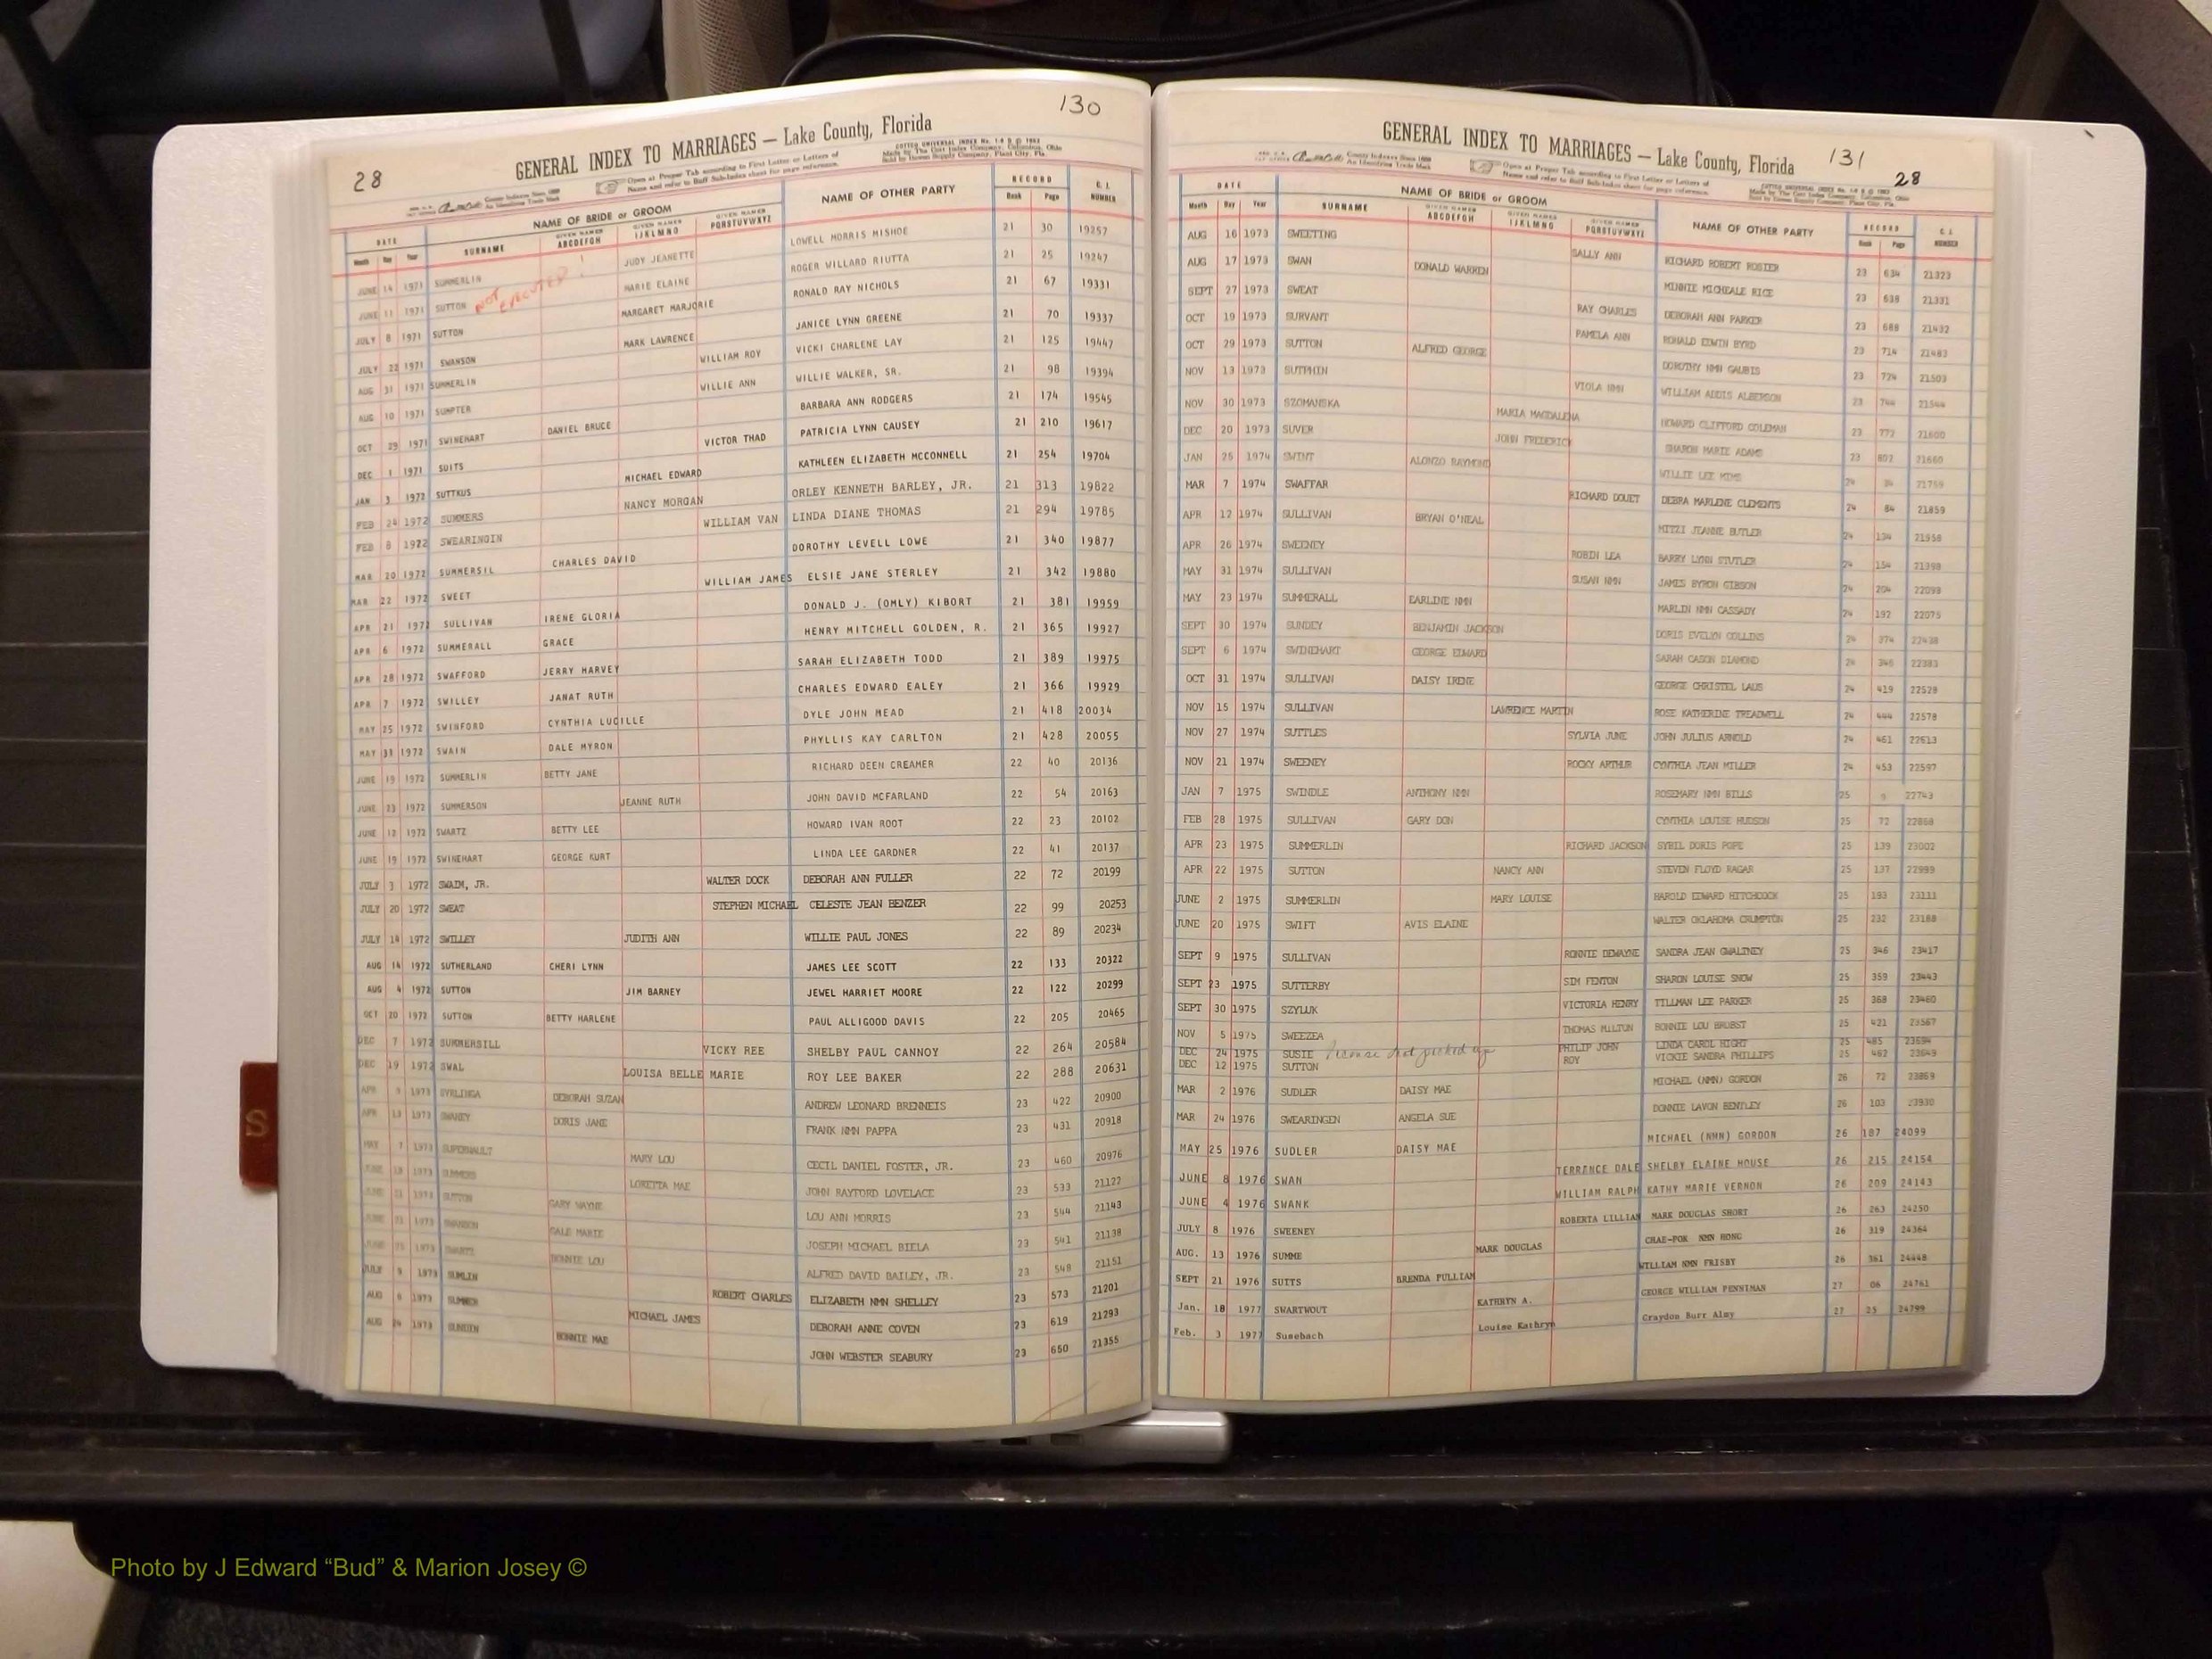 28
130
GENERAL INDEX TO MARRIAGES — Lake County, Florida
County Indexes Since 1888
An Identifying Trade Mark
Open at Proper Tab according to First Letter or Letters of
Name and refer to Buff Sub-Index sheet for page reference.
COTTED UNIVERSAL INDEX
Made by The Cott Index Company, Columbus, Ohio
Sold by Hamm Supply Company, Plant City, Fla.
DATE NAME OF BRIDE or GROOM NAME OF OTHER PARTY RECORD C. I.
Month Day Year SURNAME GIVEN NAMES ABCDEFGH GIVEN NAMES IJKLMNO GIVEN NAMES PQRSTUVWXYZ Book Page NUMBER
JUNE 14 1971 SUMMERLIN JUDY JEANETTE LOWELL MORRIS MISHOE 21 30 19257
JUNE 11 1971 SUTTON NOT EXECUTED! MARIE ELAINE ROGER WILLARD RIUTTA 21 25 19247
JULY 8 1971 SUTTON MARGARET MARJORIE RONALD RAY NICHOLS 21 67 19331
JULY 22 1971 SWANSON MARK LAWRENCE JANICE LYNN GREENE 21 70 19337
AUG 31 1971 SUMMERLIN WILLIAM ROY VICKI CHARLENE LAY 21 125 19447
AUG 10 1971 SUMPTER WILLIE ANN WILLIE WALKER, SR. 21 98 19394
OCT 29 1971 SWINEHART DANIEL BRUCE BARBARA ANN RODGERS 21 174 19545
DEC 1 1971 SUITS VICTOR THAD PATRICIA LYNN CAUSEY 21 210 19617
JAN 3 1972 SUTTKUS MICHAEL EDWARD KATHLEEN ELIZABETH MCCONNELL 21 254 19704
FEB 24 1972 SUMMERS NANCY MORGAN ORLEY KENNETH BARLEY, JR. 21 313 19822
FEB 8 1972 SWEARINGIN WILLIAM VAN LINDA DIANE THOMAS 21 294 19785
MAR 20 1972 SUMMERSIL CHARLES DAVID DOROTHY LEVELL LOWE 21 340 19877
MAR 22 1972 SWEET WILLIAM JAMES ELSIE JANE STERLEY 21 342 19880
APR 21 1972 SULLIVAN IRENE GLORIA DONALD J. (OMLY) KIBORT 21 381 19959
APR 6 1972 SUMMERALL GRACE HENRY MITCHELL GOLDEN, R. 21 365 19927
APR 28 1972 SWAFFORD JERRY HARVEY SARAH ELIZABETH TODD 21 389 19975
APR 7 1972 SWILLEY JANAT RUTH CHARLES EDWARD EALEY 21 366 19929
MAY 25 1972 SWINFORD CYNTHIA LUCILLE DYLE JOHN MEAD 21 418 20034
MAY 31 1972 SWAIN DALE MYRON PHYLLIS KAY CARLTON 21 428 20055
JUNE 19 1972 SUMMERLIN BETTY JANE RICHARD DEEN CREAMER 22 40 20136
JUNE 23 1972 SUMMERSON JEANNE RUTH JOHN DAVID MCFARLAND 22 54 20163
JUNE 12 1972 SWARTZ BETTY LEE HOWARD IVAN ROOT 22 23 20102
JUNE 19 1972 SWINEHART GEORGE KURT LINDA LEE GARDNER 22 41 20137
JULY 3 1972 SWAIM, JR. WALTER DOCK DEBORAH ANN FULLER 22 72 20199
JULY 20 1972 SWEAT STEPHEN MICHAEL CELESTE JEAN BENZER 22 99 20253
JULY 14 1972 SWILLEY JUDITH ANN WILLIE PAUL JONES 22 89 20234
AUG 14 1972 SUTHERLAND CHERI LYNN JAMES LEE SCOTT 22 133 20322
AUG 4 1972 SUTTON JIM BARNEY JEWEL HARRIET MOORE 22 122 20299
OCT 20 1972 SUTTON BETTY HARLENE PAUL ALLIGOOD DAVIS 22 205 20465
DEC 7 1972 SUMMERSILL VICKY REE SHELBY PAUL CANNOY 22 264 20584
DEC 19 1972 SWAL LOUISA BELLE MARIE ROY LEE BAKER 22 288 20631
APR 9 1973 SVRLINGA DEBORAH SUZAN ANDREW LEONARD BRENNEIS 23 422 20900
APR 13 1973 SWANEY DORIS JANE FRANK NMN PAPPA 23 431 20918
MAY 7 1973 SUPERNAULT MARY LOU CECIL DANIEL FOSTER, JR. 23 460 20976
JUNE 18 1973 SUMMERS LORETTA MAE JOHN RAYFORD LOVELACE 23 533 21122
JUNE 1973 SUTTON GARY WAYNE LOU ANN MORRIS 23 544 21143
JUNE 1973 SWANSON GALE MARIE JOSEPH MICHAEL BIELA 23 541 21138
JUNE 1973 SWARTZ BONNIE LOU ALFRED DAVID BAILEY, JR. 23 548 21151
JULY 9 1973 SUMLIN ROBERT CHARLES ELIZABETH NMN SHELLEY 23 573 21201
AUG 1973 SUMNER MICHAEL JAMES DEBORAH ANNE COVEN 23 619 21293
AUG 24 1973 SUNDIN BONNIE MAE JOHN WEBSTER SEABURY 23 650 21355
GENERAL INDEX TO MARRIAGES — Lake County, Florida
131
28
County Indexes Since 1888
An Identifying Trade Mark
Open at Proper Tab according to First Letter or Letters of
Name and refer to Buff Sub-Index sheet for page reference.
DATE NAME OF BRIDE or GROOM NAME OF OTHER PARTY RECORD C. I.
Month Day Year SURNAME GIVEN NAMES ABCDEFGH GIVEN NAMES IJKLMNO GIVEN NAMES PQRSTUVWXYZ Book Page NUMBER
AUG 16 1973 SWEETING SALLY ANN RICHARD ROBERT ROSTER 23 634 21323
AUG 17 1973 SWAN DONALD WARREN MINNIE MICHEALE RICE 23 638 21331
SEPT 27 1973 SWEAT RAY CHARLES DEBORAH ANN PARKER 23 688 21432
OCT 19 1973 SURVANT PAMELA ANN RONALD EDWIN BYRD 23 714 21483
OCT 29 1973 SUTTON ALFRED GEORGE DOROTHY NMN GAUBIS 23 724 21503
NOV 13 1973 SUTPHIN VIOLA NMN WILLIAM ADDIS ALBERSON 23 744 21544
NOV 30 1973 SZOMANSKA MARIA MAGDALENA HOWARD CLIFFORD COLEMAN 23 772 21600
DEC 20 1973 SUVER JOHN FREDERICK SHARON MARIE ADAMS 23 802 21660
JAN 25 1974 SWINT ALONZO RAYMOND WILLIE LEE MIMS 24 34 21759
MAR 7 1974 SWAFFAR RICHARD DOUET DEBRA MARLENE CLEMENTS 24 84 21859
APR 12 1974 SULLIVAN BRYAN O'NEAL MITZI JEANNE BUTLER 24 134 21958
APR 26 1974 SWEENEY ROBIN LEA BARRY LYNN STUTLER 24 154 21998
MAY 31 1974 SULLIVAN SUSAN NMN JAMES BYRON GIBSON 24 204 22098
MAY 23 1974 SUMMERALL EARLINE NMN MARLIN NMN CASSADY 24 192 22075
SEPT 30 1974 SUNDEY BENJAMIN JACKSON DORIS EVELYN COLLINS 24 374 22438
SEPT 6 1974 SWINEHART GEORGE EDWARD SARAH CASON DIAMOND 24 346 22383
OCT 31 1974 SULLIVAN DAISY IRENE GEORGE CHRISTEL LAUS 24 419 22528
NOV 15 1974 SULLIVAN LAWRENCE MARTIN ROSE KATHERINE TREADWELL 24 444 22578
NOV 27 1974 SUTTLES SYLVIA JUNE JOHN JULIUS ARNOLD 24 461 22613
NOV 21 1974 SWEENEY ROCKY ARTHUR CYNTHIA JEAN MILLER 24 453 22597
JAN 7 1975 SWINDLE ANTHONY NMN ROSEMARY NMN BILLS 25 9 22743
FEB 28 1975 SULLIVAN GARY DON CYNTHIA LOUISE HUDSON 25 72 22868
APR 23 1975 SUMMERLIN RICHARD JACKSON SYBIL DORIS POPE 25 139 23002
APR 22 1975 SUTTON NANCY ANN STEVEN FLOYD RAGAR 25 137 22999
JUNE 2 1975 SUMMERLIN MARY LOUISE HAROLD EDWARD HITCHCOCK 25 193 23111
JUNE 20 1975 SWIFT AVIS ELAINE WALTER OKLAHOMA CRUMPTON 25 232 23188
SEPT 9 1975 SULLIVAN RONNIE DEWAYNE SANDRA JEAN GWALTNEY 25 346 23417
SEPT 23 1975 SUTTERBY SIM FENTON SHARON LOUISE SNOW 25 359 23443
SEPT 30 1975 SZYLUK VICTORIA HENRY TILLMAN LEE PARKER 25 368 23460
NOV 5 1975 SWEEZEA THOMAS MILTON BONNIE LOU BROBST 25 421 23567
DEC 24 1975 SUSIE license not picked up PHILIP JOHN LINDA CAROL HIGHT 25 485 23694
DEC 12 1975 SUTTON ROY VICKIE SANDRA PHILLIPS 25 462 23649
MAR 2 1976 SUDLER DAISY MAE MICHAEL (NMN) GORDON 26 72 23869
MAR 24 1976 SWEARINGEN ANGELA SUE DONNIE LAVON BENTLEY 26 103 23930
MAY 25 1976 SUDLER DAISY MAE MICHAEL (NMN) GORDON 26 187 24099
JUNE 8 1976 SWAN TERRENCE DALE SHELBY ELAINE HOUSE 26 215 24154
JUNE 4 1976 SWANK WILLIAM RALPH KATHY MARIE VERNON 26 209 24143
JULY 8 1976 SWEENEY ROBERTA LILLIAN MARK DOUGLAS SHORT 26 263 24250
AUG. 13 1976 SUMME MARK DOUGLAS CHAE-POK NMN HONG 26 319 24364
SEPT 21 1976 SUITS BRENDA PULLIAM WILLIAM NMN FRISBY 26 361 24448
Jan. 18 1977 SWARTWOUT KATHRYN A. GEORGE WILLIAM PENNIMAN 27 06 24761
Feb. 3 1977 Susebach Louise Kathryn Craydon Burr Almy 27 25 24799
S
Photo by J Edward “Bud” & Marion Josey ©